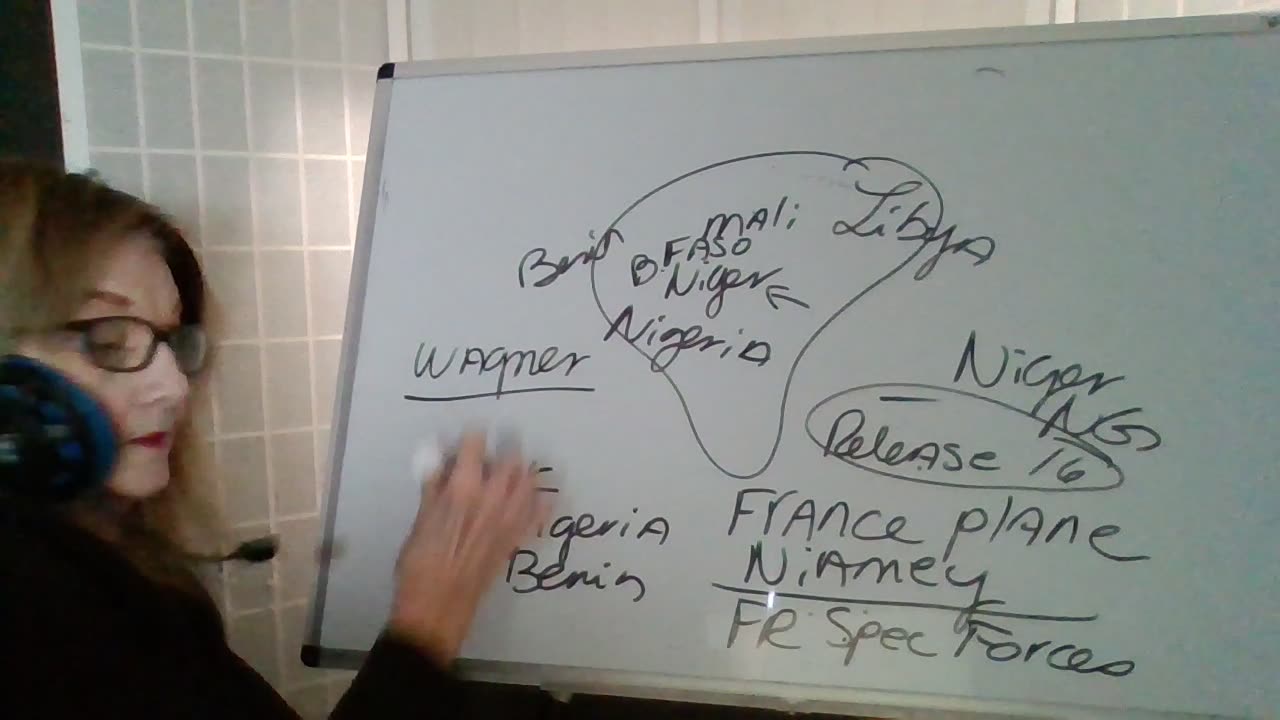 Mali Libya
B. FASO
Benin
Niger
Nigeria
Wagner
Niger
NG
Release 16
France plane
Niamey
FR Spec Forces
igeria
Benin